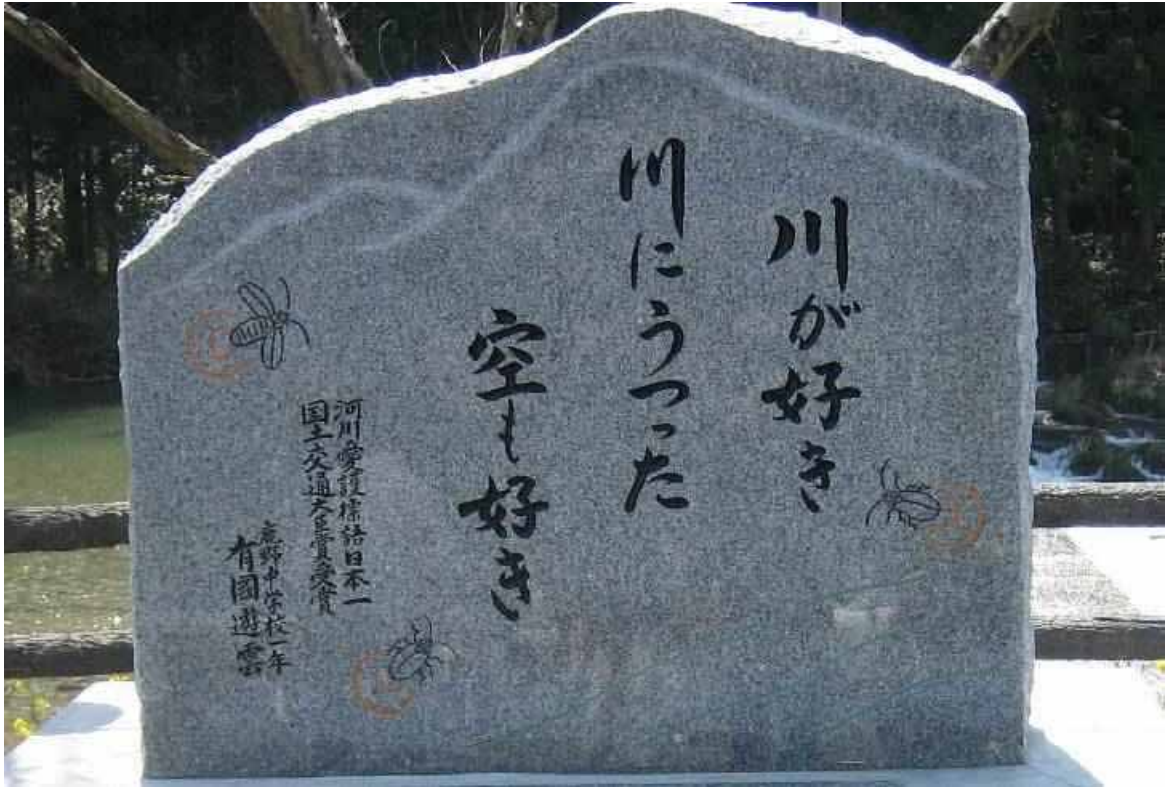 川が好き
川にうつった
空も好き
河川愛護標語日本一
国土交通大臣賞受賞
鹿野中学校一年
有國遊雲